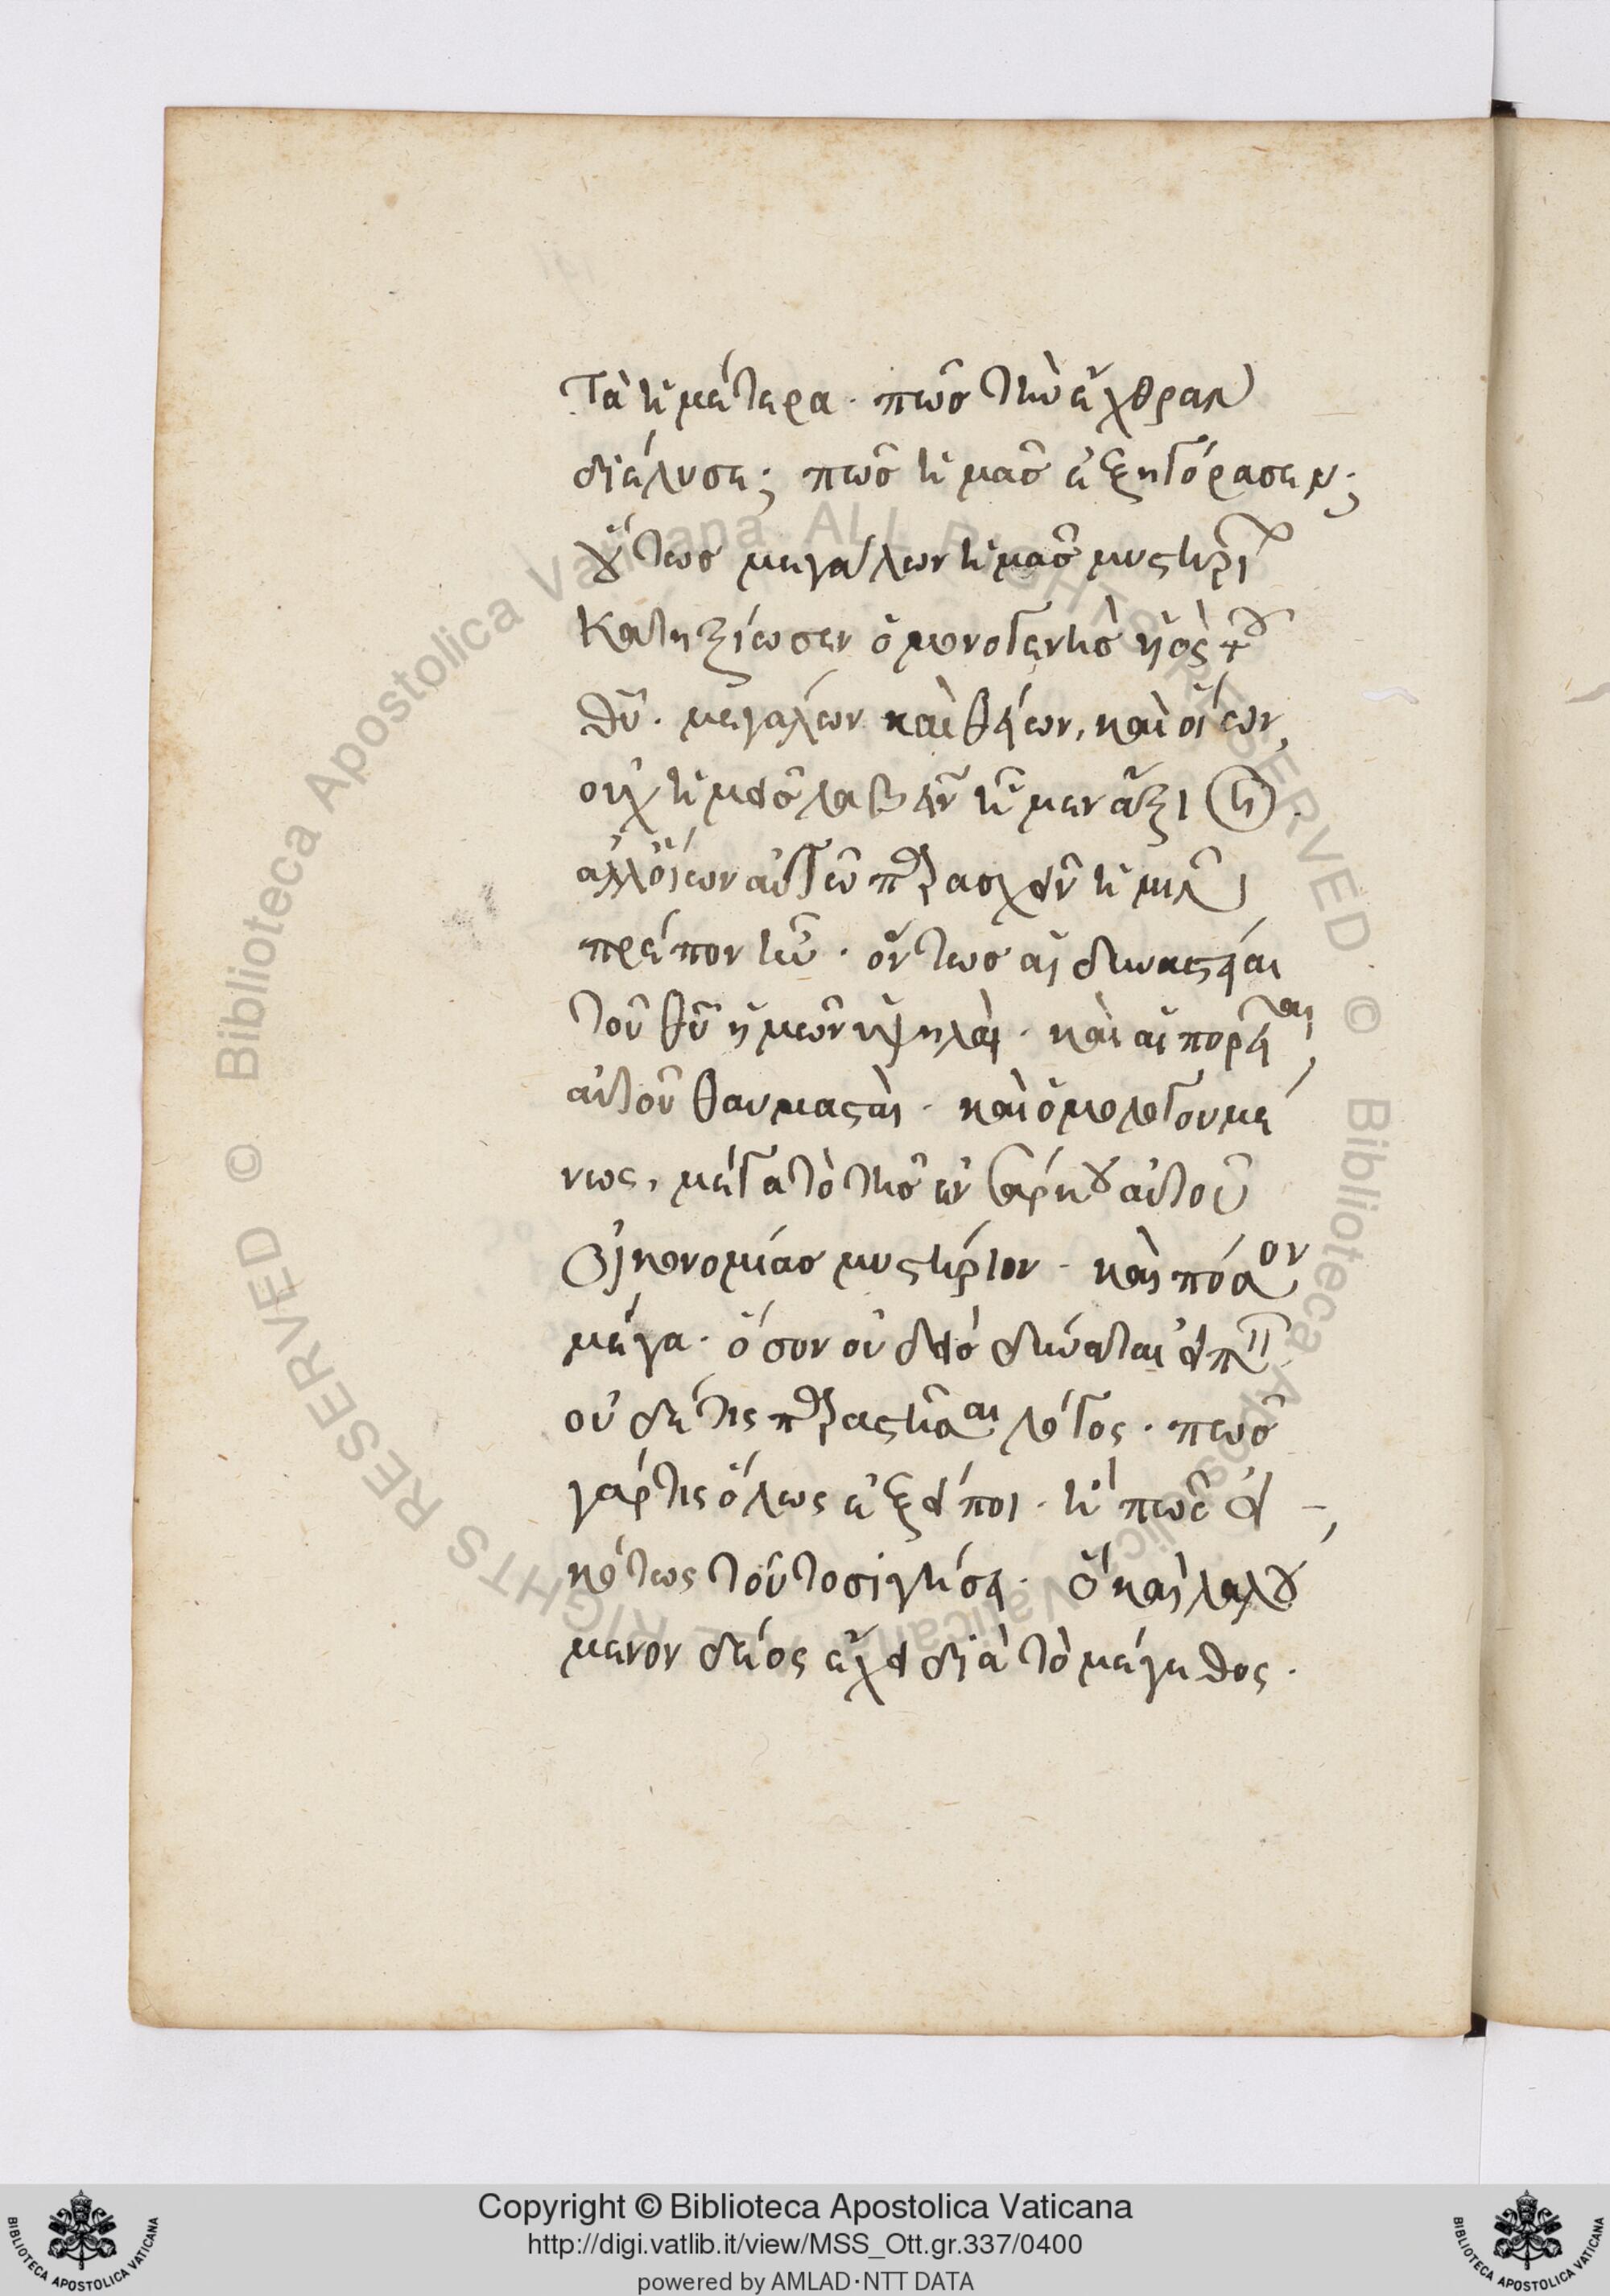 τὰ ἡμέτερα· πῶς τὴν ἔχθραν
διέλυσε; πῶς ἡμᾶς ἐξηγόρασεν;
οὕτως μεγάλων ἡμᾶς μυστηρί
κατηξίωσεν ὁ μονογενὴς υἱὸς τοῦ
θῦ. μεγάλων καὶ θείων, καὶ οἵων,
οὐχ ἡμεῖς λαβεῖν ἦμεν ἄξιοι.
ἀλλ' οἵων αὐτῷ παρασχεῖν ἡμῖν
πρέπον ἦν. ὄντως αἱ δυναστεῖαι
τοῦ θῦ ἡμῶν ὑψηλαί. καὶ αἱ πορεῖαι
αὐτοῦ θαυμασταί. καὶ ὁμολογουμέ
νως, μέγα τὸ τῆς ἐν σαρκὶ αὐτοῦ
οἰκονομίας μυστήριον. καὶ πόσον
μέγα. ὅσον οὐδεὶς δύναται εἰπεῖν
οὐδέ τις παραστῆσαι λόγος. πῶς
γάρ τις ὅλως ἐξείποι. ἢ πῶς εἰ
κότως τοῦτο σιγήσει. ὃ καὶ λαλού
μενον δέος ἔχει διὰ τὸ μέγεθος.
Copyright © Biblioteca Apostolica Vaticana
http://digi.vatlib.it/view/MSS_Ott.gr.337/0400
powered by AMLAD·NTT DATA